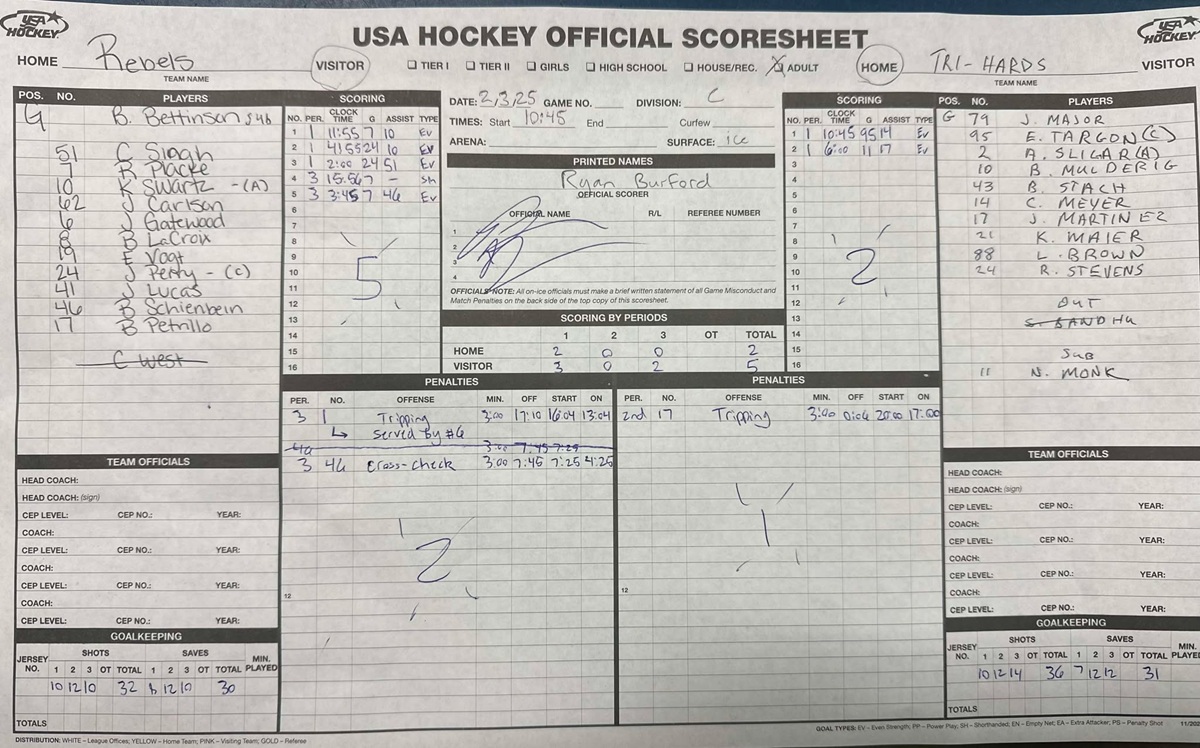 USA HOCKEY
USA HOCKEY OFFICIAL SCORESHEET
USA HOCKEY
HOME Rebels VISITOR ☐ TIER I ☐ TIER II ☐ GIRLS ☐ HIGH SCHOOL ☐ HOUSE/REC. ☒ ADULT HOME TRI-HARDS VISITOR
TEAM NAME
TEAM NAME
POS. NO. PLAYERS
G B. Bettinson
51 C Singh
1 R Placke
10 K Swartz - (A)
62 J Carlson
6 J Gatewood
8 B LaCroix
19 E Vogt
24 J Perry - (C)
41 J Lucas
46 B Schienbein
17 B Petrillo
C West
SCORING
NO. PER. CLOCK TIME G ASSIST TYPE
1 1 11:55 7 10 EV
2 1 4:55 24 10 EV
3 1 2:00 24 51 EV
4 3 15:56 7 - SH
5 3 3:45 7 46 EV
6
7
8
9
10
11
12
13
14
15
16
5
DATE: 2/3/25 GAME NO. DIVISION: C
TIMES: Start 10:45 End Curfew
ARENA: SURFACE: ice
PRINTED NAMES
Ryan Burford
OFFICIAL SCORER
OFFICIAL NAME R/L REFEREE NUMBER
1
2
3
4
OFFICIALS NOTE: All on-ice officials must make a brief written statement of all Game Misconduct and
Match Penalties on the back side of the top copy of this scoresheet.
SCORING BY PERIODS
1 2 3 OT TOTAL
HOME 2 0 0 2
VISITOR 3 0 2 5
SCORING
NO. PER. CLOCK TIME G ASSIST TYPE
1 1 10:45 95 14 EV
2 1 6:00 11 17 EV
3
4
5
6
7
8
9
10
11
12
13
14
15
16
2
POS. NO. PLAYERS
G 79 J. MAJOR
95 E. TARGON (C)
2 A. SLIGAR (A)
10 B. MULDERIG
43 B. STACH
14 C. MEYER
17 J. MARTINEZ
21 K. MAIER
88 L. BROWN
24 R. STEVENS
OUT
S. SANDHU
SUB
11 N. MONK
PENALTIES
PER. NO. OFFENSE MIN. OFF START ON
3 1 Tripping 3:00 17:10 16:04 13:04
↳ Served by #6
3:00 7:45 7:25
3 46 Cross-check 3:00 7:45 7:25 4:25
2
12
PENALTIES
PER. NO. OFFENSE MIN. OFF START ON
2nd 17 Tripping 3:00 0:06 20:00 17:00
1
12
TEAM OFFICIALS
HEAD COACH:
HEAD COACH: (sign)
CEP LEVEL: CEP NO.: YEAR:
COACH:
CEP LEVEL: CEP NO.: YEAR:
COACH:
CEP LEVEL: CEP NO.: YEAR:
COACH:
CEP LEVEL: CEP NO.: YEAR:
GOALKEEPING
JERSEY NO. SHOTS SAVES MIN. PLAYED
1 2 3 OT TOTAL 1 2 3 OT TOTAL
10 12 10 32 12 10 30
TOTALS
TEAM OFFICIALS
HEAD COACH:
HEAD COACH: (sign)
CEP LEVEL: CEP NO.: YEAR:
COACH:
CEP LEVEL: CEP NO.: YEAR:
COACH:
CEP LEVEL: CEP NO.: YEAR:
COACH:
CEP LEVEL: CEP NO.: YEAR:
GOALKEEPING
JERSEY NO. SHOTS SAVES MIN. PLAYED
1 2 3 OT TOTAL 1 2 3 OT TOTAL
10 12 14 36 7 12 12 31
TOTALS
DISTRIBUTION: WHITE – League Offices; YELLOW – Home Team; PINK – Visiting Team; GOLD – Referee
GOAL TYPES: EV – Even Strength; PP – Power Play, SH – Shorthanded; EN – Empty Net; EA – Extra Attacker, PS – Penalty Shot